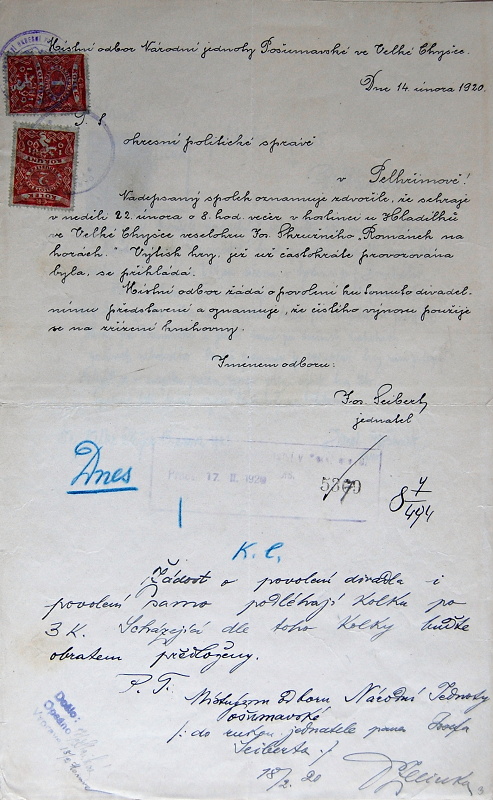 Místní odbor Národní jednoty Pošumavské ve Velké Chyšce.
Dne 14. února 1920.
P. S.
okresní politické správě
v Pelhřimově!
Nadepsaný spolek oznamuje zdvořile, že sehraje
v neděli 22. února o 8. hod. večer v hostinci u Hladílků
ve Velké Chyšce veselohru Jos. Skružného „Románek na
horách." Výtisk hry, jež už častokráte provozována
byla, se přikládá.
Místní odbor žádá o povolení ku tomuto divadel-
nímu představení a oznamuje, že čistého výnosu použije
se na zřízení knihovny.
Jménem odboru:
Jos. Seibert
jednatel
Dnes
17. II. 1920
5369
8 7/494
K. C.
Žádost o povolení divadla i
povolení samo podléhají kolku po
3 K. Scházející dle toho kolky buďtež
obratem předloženy.
P. T.
Místnímu Odboru Národní Jednoty
Pošumavské
/: do rukou jednatele pana Josefa
Seiberta :/
18/2. 20
Došlo:
Opsáno: